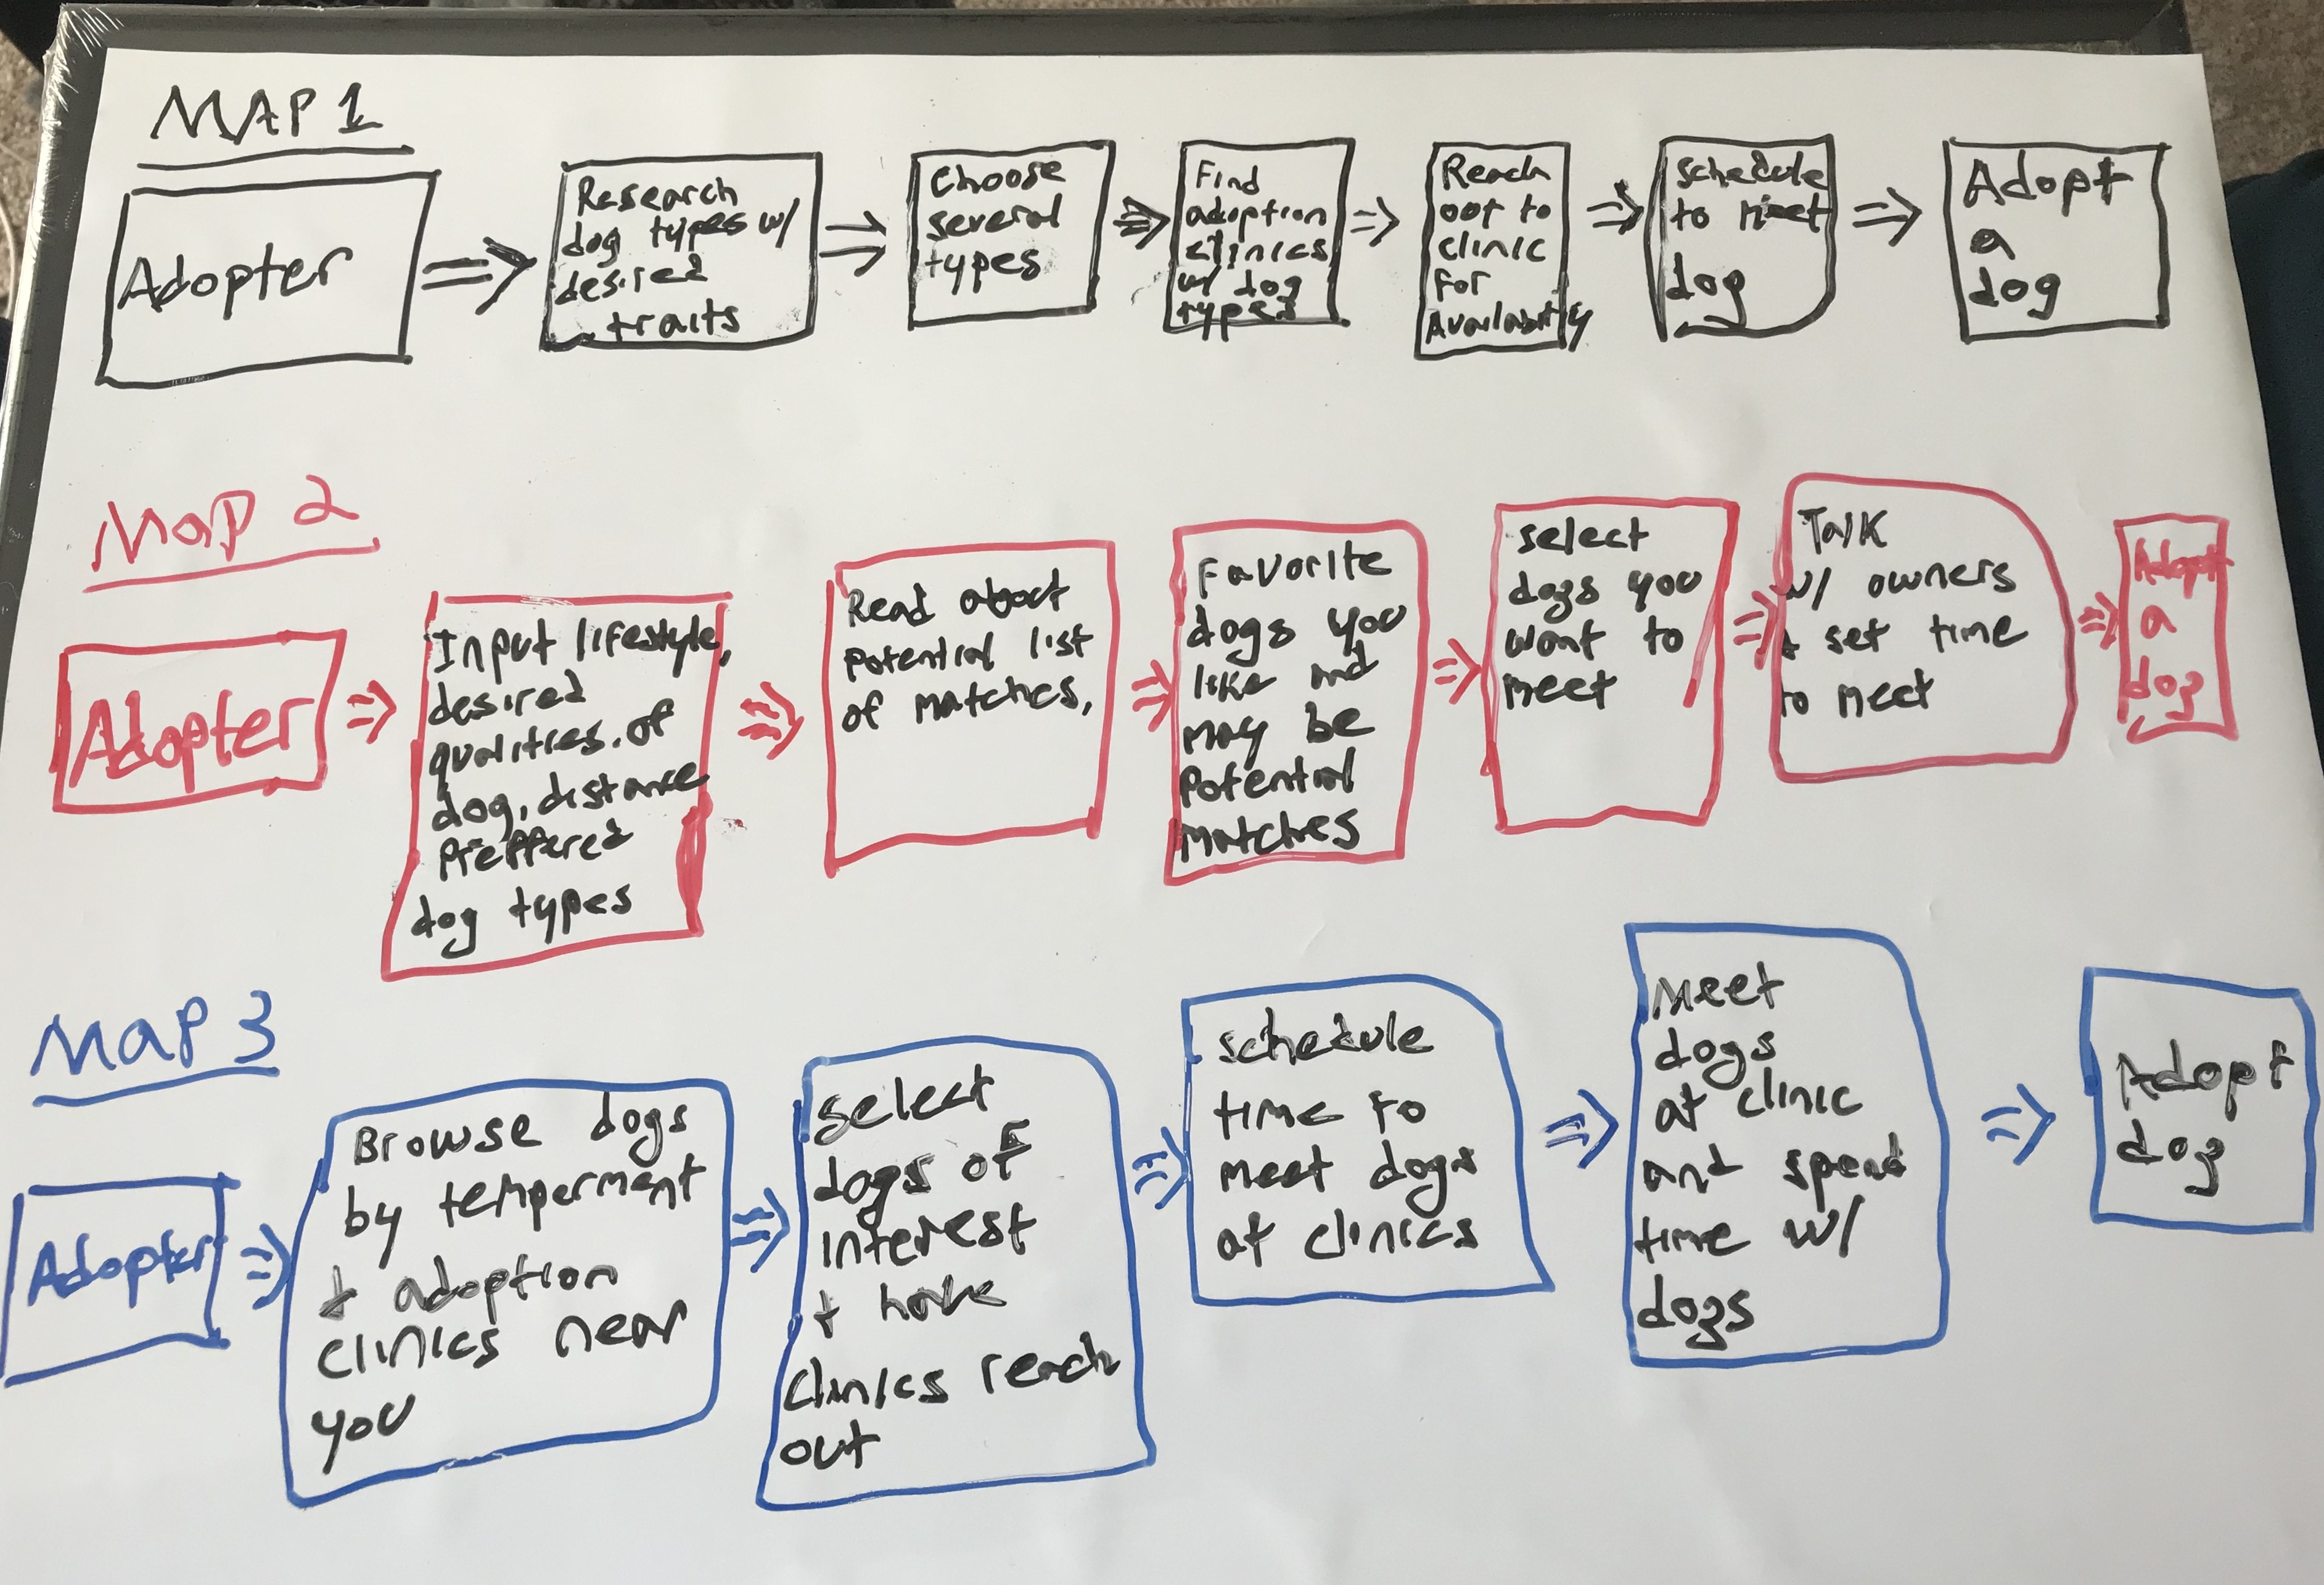 MAP 1
Adopter
Research
dog types w/
desired
traits
Choose
several
types
Find
adoption
clinics
w/ dog
types
Reach
oot to
clinic
For
Availability
schedule
to meet
dog
Adopt
a
dog
Map 2
Adopter
Input lifestyle,
desired
qualities of
dog, distance
Preffered
dog types
Read about
potential list
of matches.
Favorite
dogs you
like and
may be
potential
matches
select
dogs you
want to
meet
Talk
w/ owners
+ set time
to meet
Adopt
a
dog
MAP 3
Adopter
Browse dogs
by temperment
+ adoption
clinics near
you
select
dogs of
interest
+ have
clinics reach
out
schedule
time to
meet dogs
at clinics
Meet
dogs
at clinic
and spend
time w/
dogs
Adopt
dog